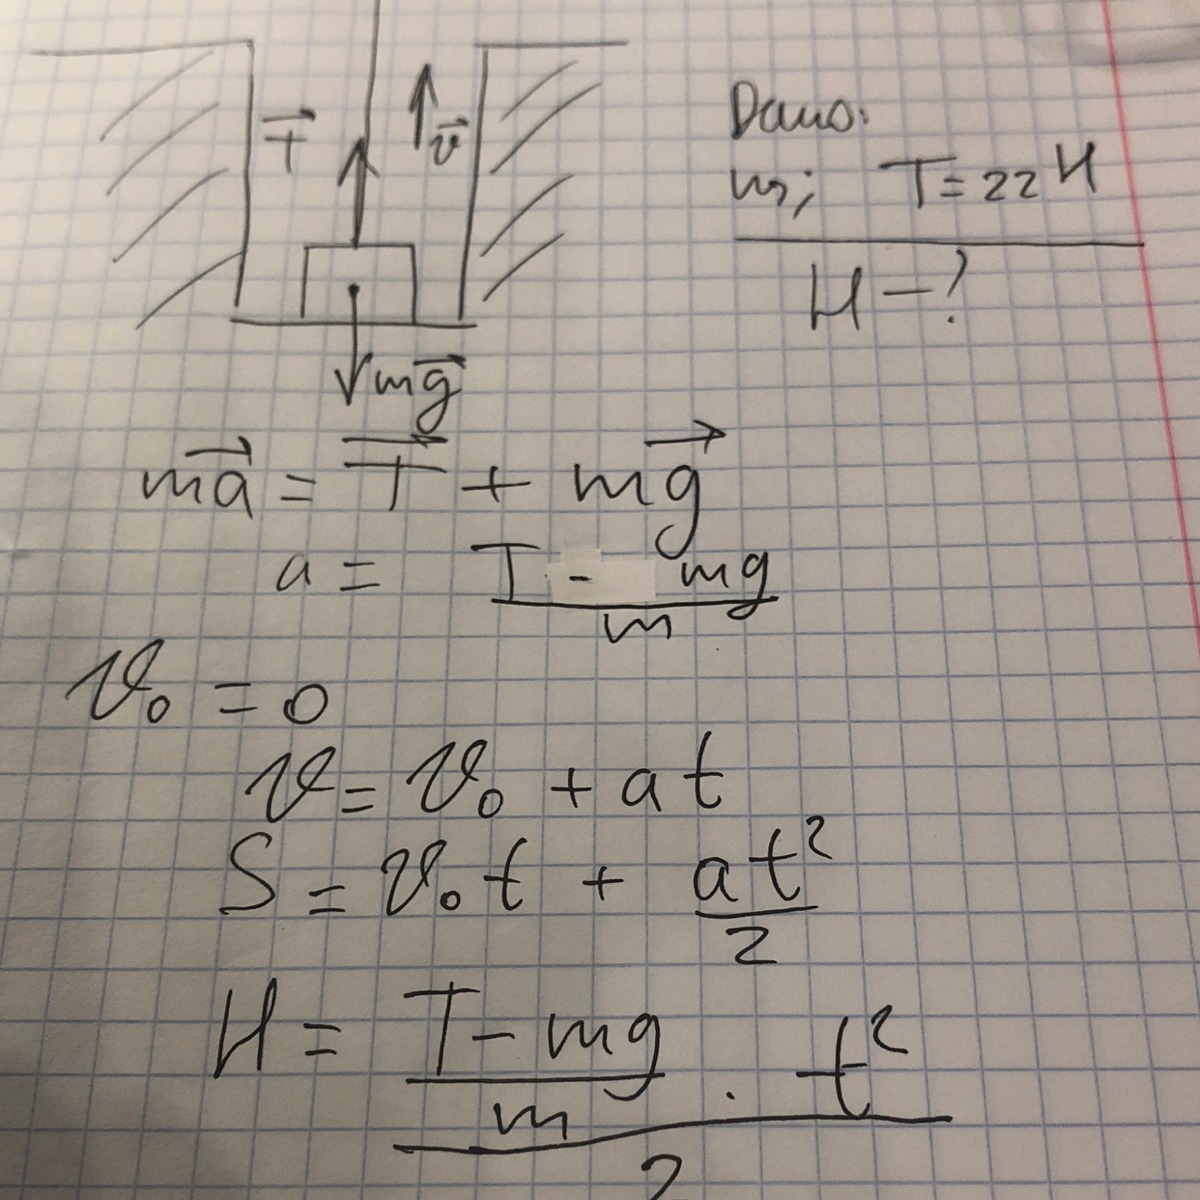 T⃗
v⃗
mg⃗
Дано:
m; T=22 Н
H - ?
ma⃗ = T⃗ + mg⃗
a = (T - mg)/m
v₀ = 0
v = v₀ + at
S = v₀t + at²/2
H = ((T - mg)/m · t²)/2